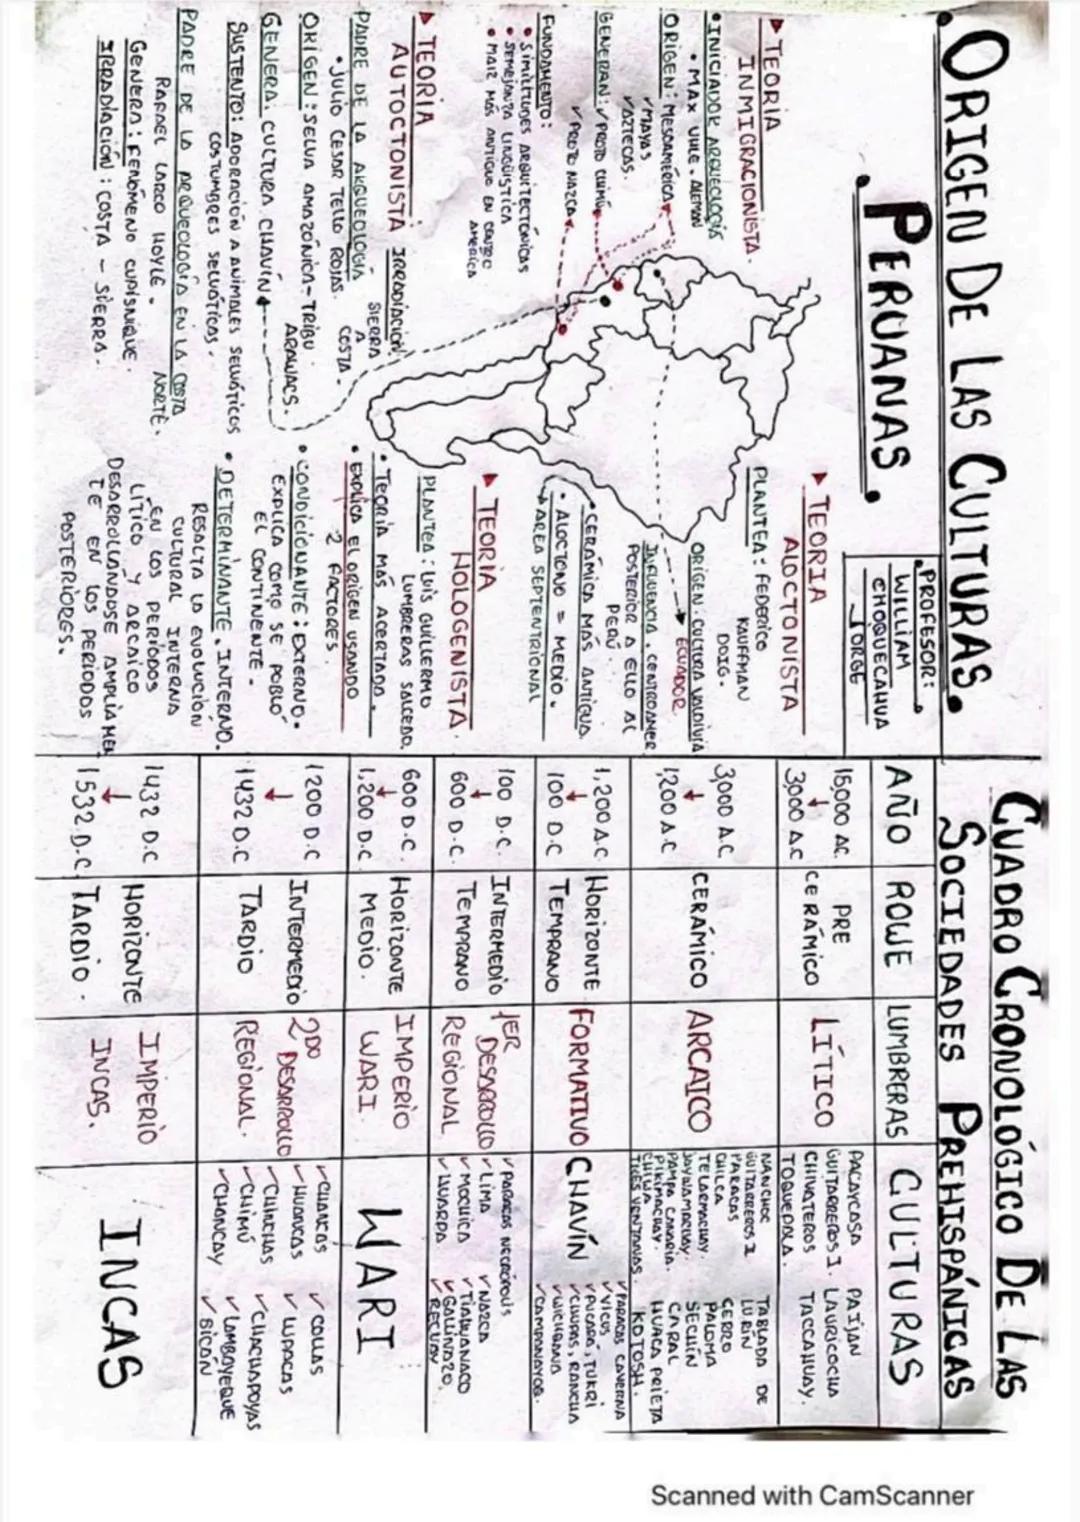 .ORIGEN DE LAS CULTURAS.
.PERUANAS.
.PROFESOR:
WILLIAM
CHOQUECAHUA
JORGE
▸TEORIA
INMIGRACIONISTA.
•INICIADOR ARQUEOLOGÍA
• MAX UHLE. ALEMAN
ORIGEN: MESOAMÉRICA
✓MAYAS
✓AZTECAS.
GENERAN: ✓PROTO CHIMÚ
✓PROTO NAZCA
FUNDAMENTO:
• SIMILITUDES ARQUITECTÓNICAS
• SEMEJANZA LINGÜISTICA
• MAIZ MÁS ANTIGUO EN CENTRO
AMÉRICA
▸TEORIA
AUTOCTONISTA
IRRADIACION:
SIERRA
A
COSTA.
PADRE DE LA ARQUEOLOGIA
•JULIO CESAR TELLO ROJAS.
ORIGEN: SELVA AMAZÓNICA-TRIBU
ARAWACS.
GENERA. CULTURA CHAVÍN
SUSTENTO: ADORACIÓN A ANIMALES SELVÁTICOS
COSTUMBRES SELVÁTICAS.
PADRE DE LA ARQUEOLOGÍA EN LA COSTA
NORTE.
RAFAEL LARCO HOYLE.
GENERA: FENÓMENO CUPISNIQUE.
IRRADIACIÓN: COSTA - SIERRA.
▸TEORIA
ALOCTONISTA
PLANTEA: FEDERICO
KAUFFMAN
DOIG.
ORIGEN: CULTURA VALDIVIA
ECUADOR
INFLUENCIA. CENTROAMER
POSTERIOR A ELLO AL
PERÚ.
•CERÁMICA MÁS ANTIGUA
• ALOCTONO = MEDIO.
AREA SEPTENTRIONAL
▸TEORIA
HOLOGENISTA.
PLANTEA: LUIS GUILLERMO
LUMBRERAS SALCEDO.
• TEORIA MÁS ACERTADA.
• EXPLICA EL ORIGEN USANDO
2 FACTORES.
•CONDICIONANTE: EXTERNO.
EXPLICA COMO SE POBLÓ
EL CONTINENTE.
• DETERMINANTE. INTERNO.
RESALTA LA EVOLUCIÓN
CULTURAL INTERNA
EN LOS PERÍODOS
LÍTICO Y ARCAICO
DESARROLLANDOSE AMPLIAMEN
TE EN LOS PERIODOS
POSTERIORES.
CUADRO CRONOLÓGICO DE LAS
SOCIEDADES PREHISPÁNICAS
AÑO ROWE LUMBRERAS CULTURAS
15,000 AC.
3,000 A.C
PRE
CERÁMICO
LÍTICO
PACAYCASA
GUITARREROS I.
CHIVATEROS
TOQUEPALA.
PAIJAN
LAURICOCHA
TACCAHUAY.
3,000 A.C
1,200 A.C
CERÁMICO
ARCAICO
NANCHOC
GUITARREROS I
PARACAS
CHILCA
TELARMACHAY.
JAYWAMACHAY.
PAMPA CANARIA.
PIKIMACHAY.
CHILCA.
TRES VENTANAS.
TABLADA DE
LURÍN
CERRO
PALOMA
SECHÍN
CARAL
HUACA PRIETA
KOTOSH.
1,200 A.C
100 D.C
HORIZONTE
TEMPRANO
FORMATIVO
CHAVÍN
✓PARACAS CAVERNA
✓VICUS
✓PUCARÁ,
✓CHUPAS, RANCHA
✓WICHQANA
✓CAMPANAYOQ.
100 D.C
600 D.C.
INTERMEDIO
TEMPRANO
1ER
DESARROLLO
REGIONAL.
✓PARACAS NECRÓPOLIS
✓LIMA
✓MOCHICA
✓HUARPA
✓NAZCA
✓TIAHUANACO
✓GALLINAZO.
✓RECUAY
600 D.C.
1,200 D.C.
HORIZONTE
MEDIO.
IMPERIO
WARI.
WARI
1200 D.C
1432 D.C
INTERMEDIO
TARDIO
2DO
DESARROLLO
REGIONAL.
✓CHANCAS
✓HUANCAS
✓CHINCHAS
✓CHIMÚ
✓CHANCAY
✓COLLAS
✓LUPACAS
✓CHACHAPOYAS
✓LAMBAYEQUE
✓SICÁN
1432 D.C
1532 D.C.
HORIZONTE
TARDIO.
IMPERIO
INCAS.
INCAS
Scanned with CamScanner